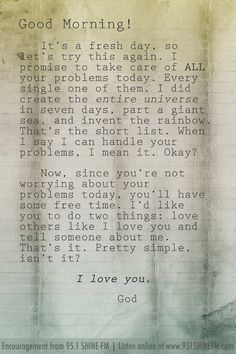 Good Morning!
It's a fresh day, so
let's try this again. I
promise to take care of ALL
your problems today. Every
single one of them. I did
create the entire universe
in seven days, part a giant
sea, and invent the rainbow.
That's the short list. When
I say I can handle your
problems, I mean it. Okay?
Now, since you're not
worrying about your
problems today, you'll have
some free time. I'd like
you to do two things: love
others like I love you and
tell someone about me.
That's it. Pretty simple,
isn't it?
I love you.
God
Encouragement from 95.1 SHINE-FM | Listen online at www.951SHINEFM.com